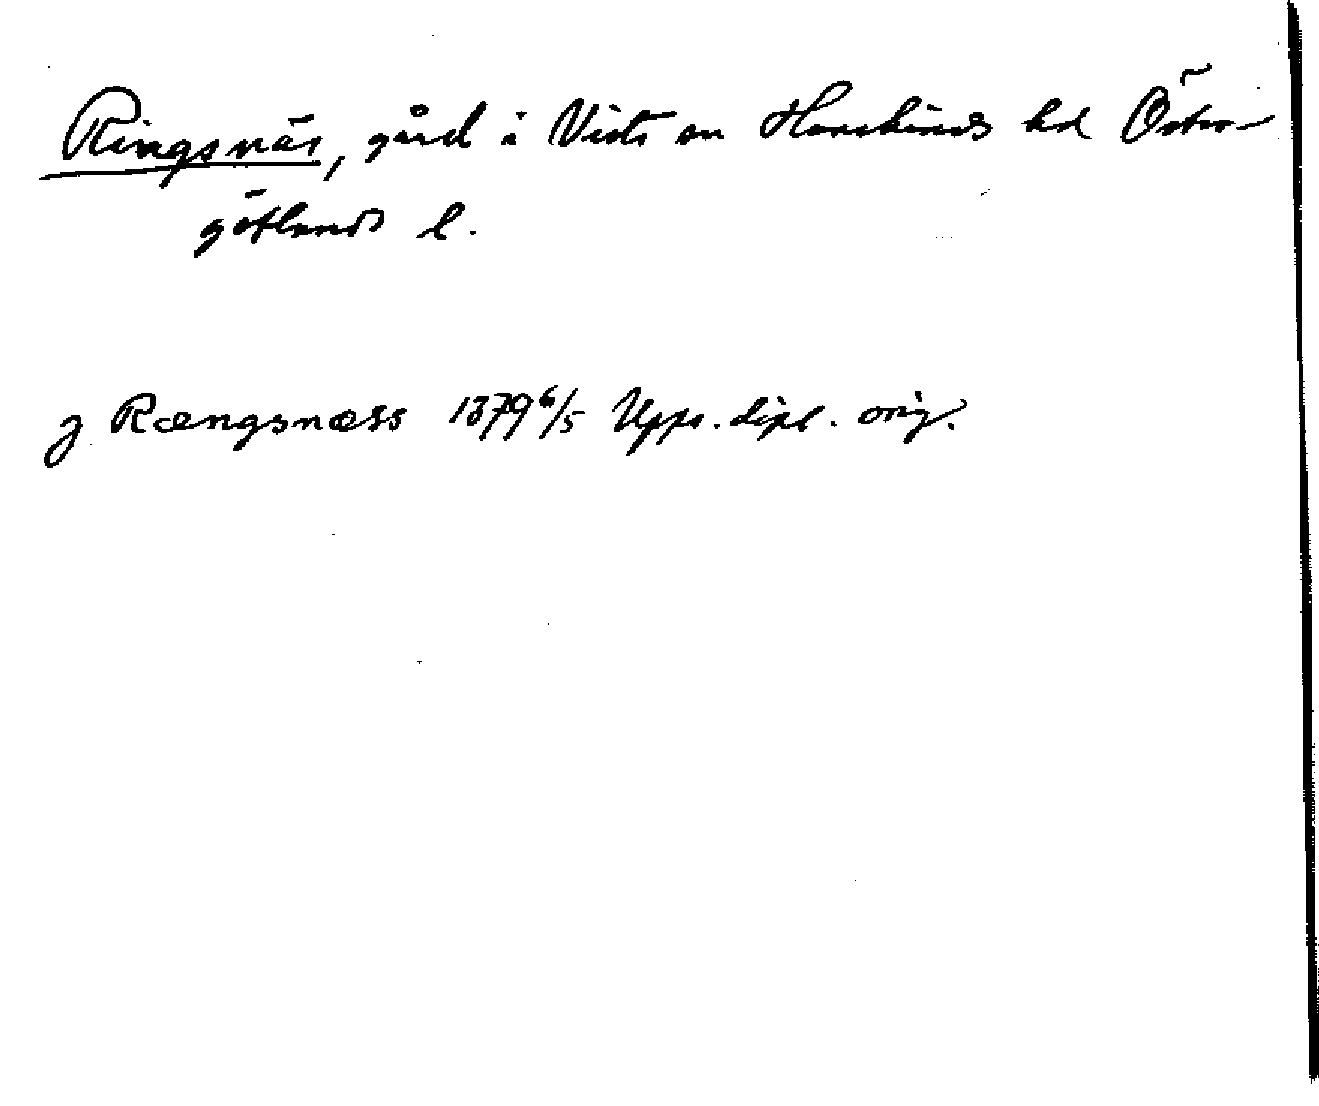 Ringsnäs, gård i Vists sn Hanekinds hd Öster-
götlands l.
j Rængsnæss 1379 6/5 Upps. dipl. orig.